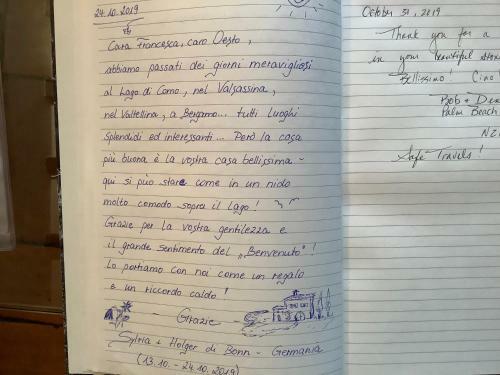 24.10.2019
Cara Francesca, caro Desto,
abbiamo passati dei giorni meravigliosi
al Lago di Como, nel Valsassina,
nel Valtellina, a Bergamo... tutti luoghi
splendidi ed interessanti... Però la casa
più buona è la vostra casa bellissima -
qui si può stare come in un nido
molto comodo sopra il lago!
Grazie per la vostra gentilezza e
il grande sentimento del „Benvenuto"!
Lo portiamo con noi come un regalo
e un riccordo caldo!
- Grazie -
Sylvia + Holger di Bonn - Germania
(13.10. - 24.10.2019)
October 31, 2019
Thank you for a
in your beautiful
Bellissimo!
Bob +
Palm Beach
NZ
Safe Travels!